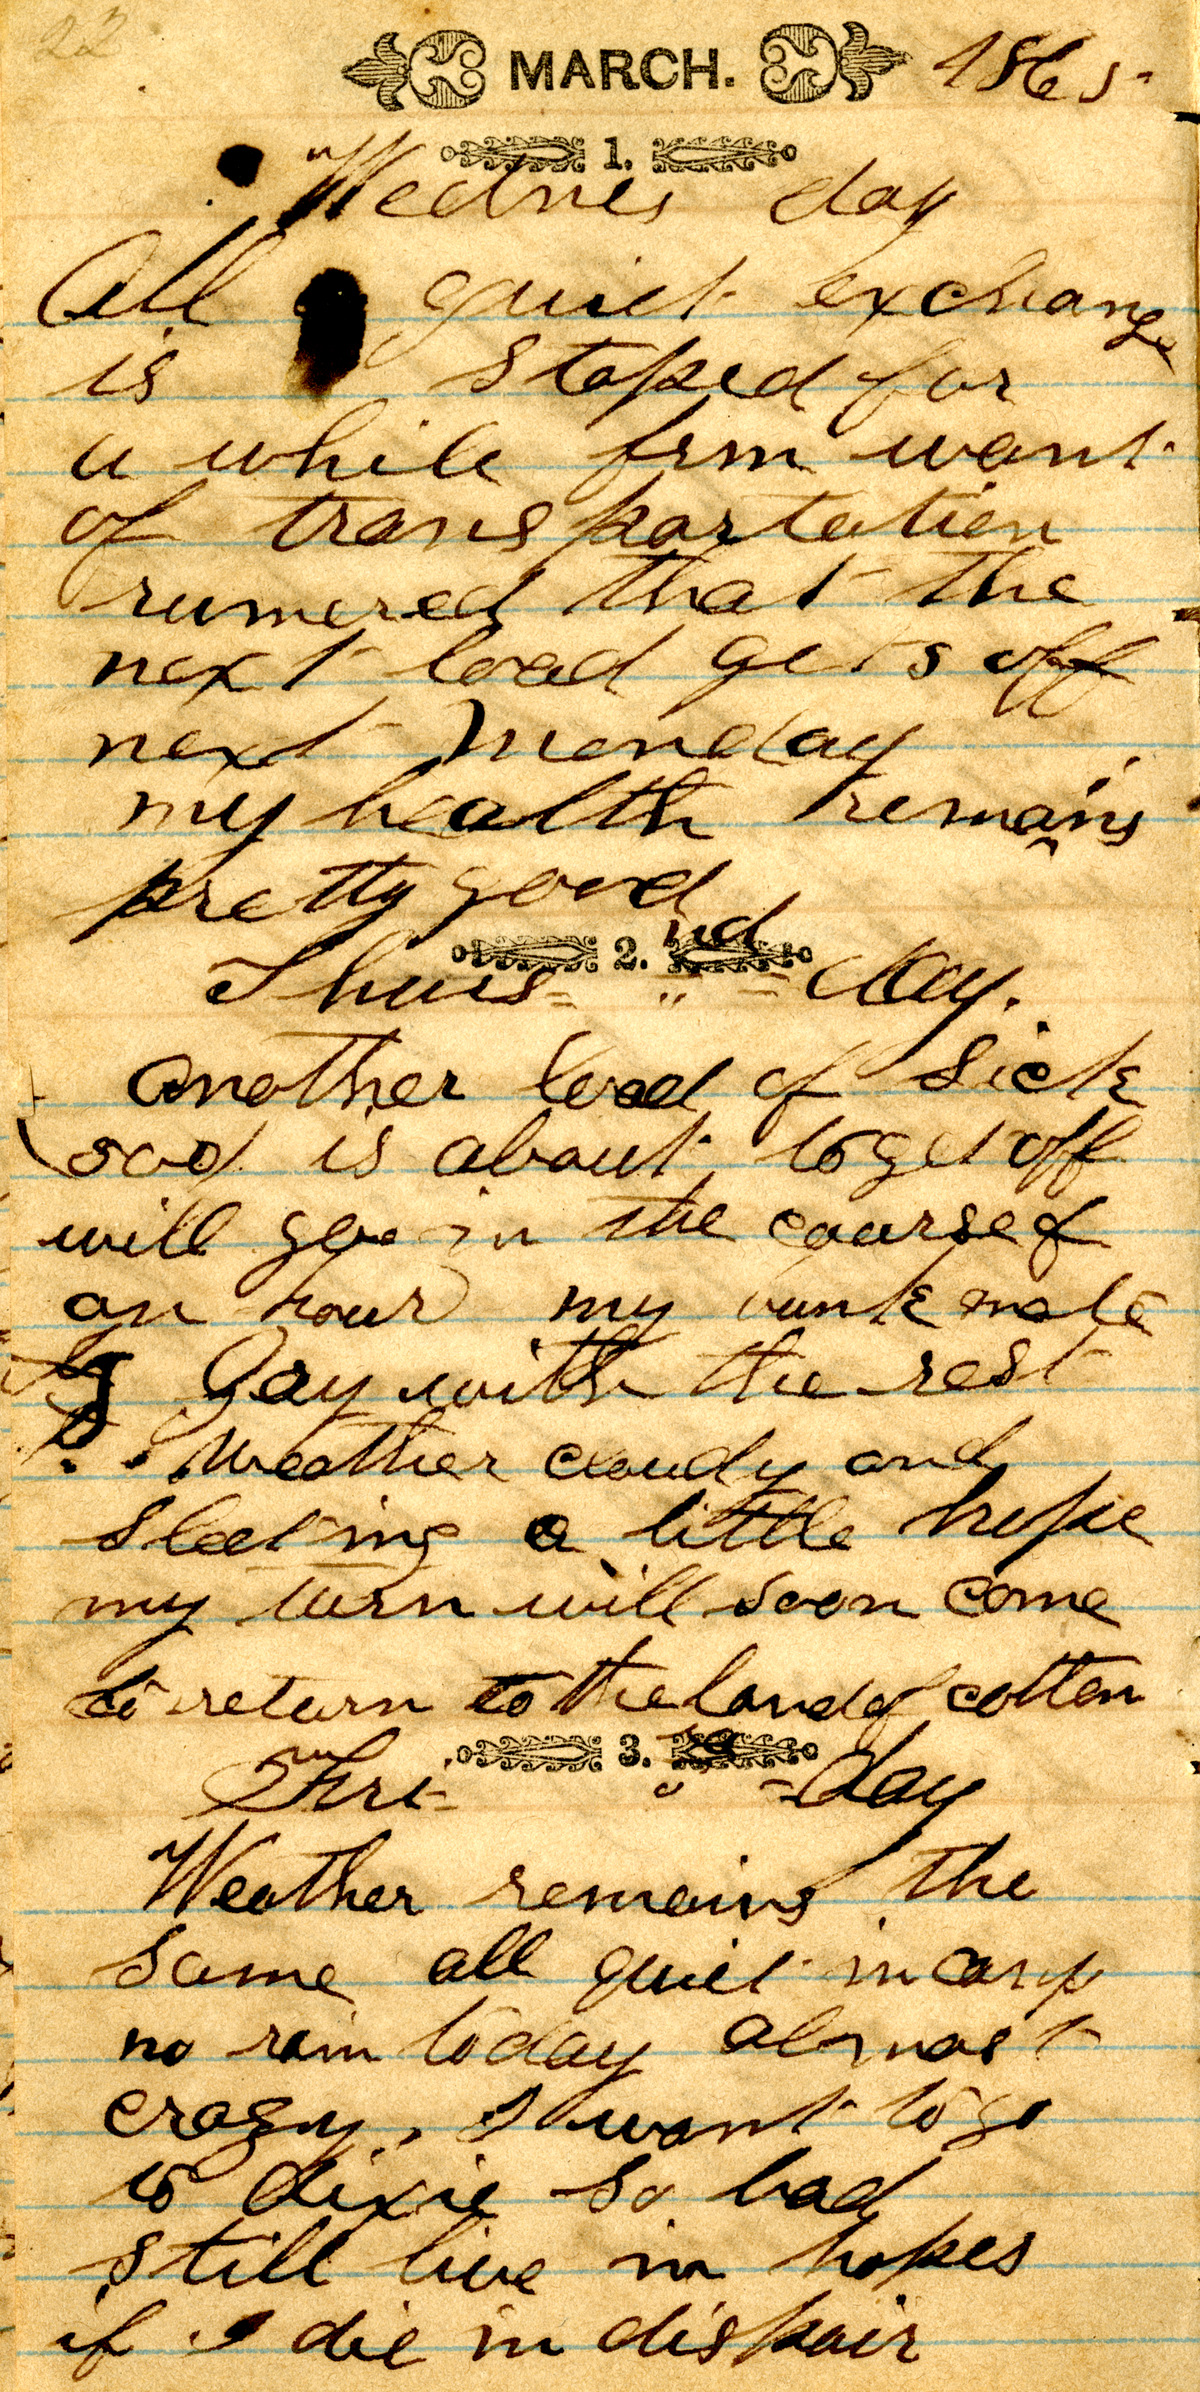 22
MARCH. 1865
1.
Wednes day
All quiet exchange
is stoped for
a while frm want
of transportation
rumered that the
next load gets off
next Monday
my health remains
pretty good
2.nd
Thurs= " =day.
another load of Sick
is about to get off
will goe in the course of
an hour my bunk mate
Gay with the rest
Weather cloudy and
sleeting a little hope
my turn will soon come
to return to the land of cotten
3.rd
Fri- " =day
Weather remains the
same all quiet in camp
no rain today almost
crazy. I want to go
to dixie so bad
still live in hopes
if I die in dispair